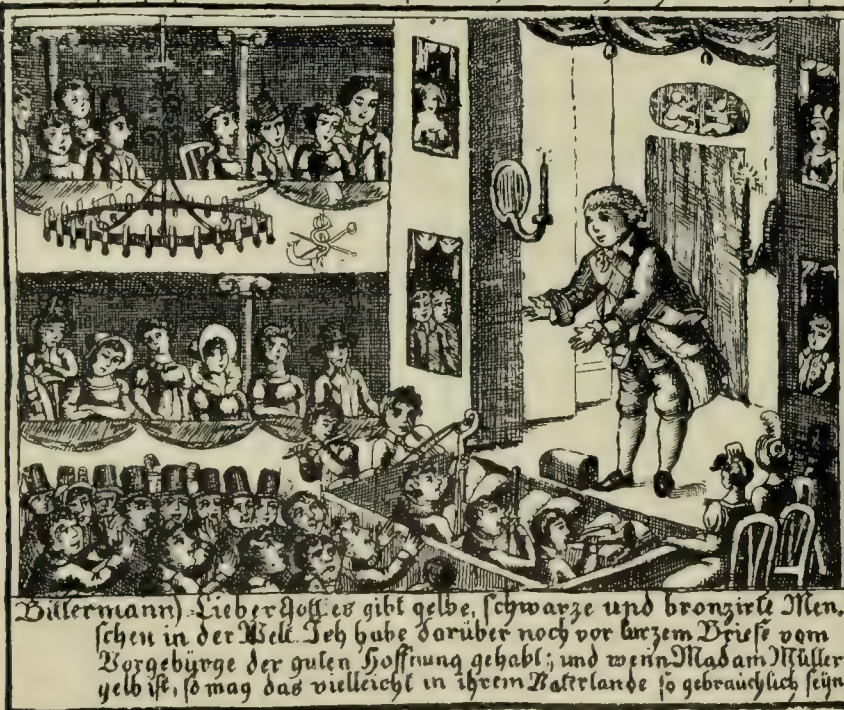 Bittermann) Lieber Gott es gibt gelbe, schwarze und bronzirte Men,
schen in der Welt. Ich habe darüber noch vor kurzem Briefe vom
Vorgebürge der guten Hoffnung gehabt; und wenn Madam Müller
gelb ist, so mag das vielleicht in ihrem Vaterlande so gebräuchlich seÿn